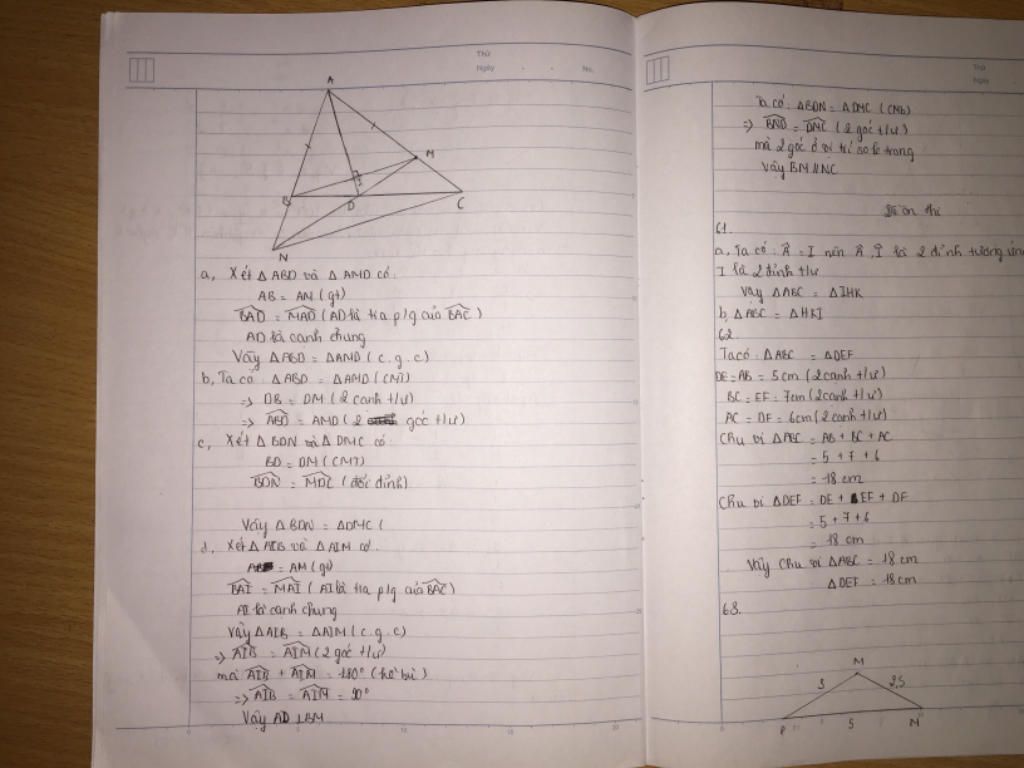 Thứ
Ngày
No.
A
M
B
D
C
N
a, Xét Δ ABD và Δ AMD có:
AB = AM (gt)
BAD = MAD (AD là tia p/g của BAC)
AD là cạnh chung
Vậy Δ ABD = Δ AMD (c.g.c)
b, Ta có: Δ ABD = Δ AMD (CMT)
=> DB = DM (2 cạnh t/ư)
=> ABD = AMD (2 góc t/ư)
c, Xét Δ BDN và Δ DMC có:
BD = DM (CMT)
BDN = MDC (đối đỉnh)
Vậy Δ BDN = Δ DMC (
d, Xét Δ AIB và Δ AIM có
= AM (gt)
BAI = MAI (AI là tia p/g của BAC)
AI là cạnh chung
Vậy Δ AIB = Δ AIM (c.g.c)
=> AIB = AIM (2 góc t/ư)
mà AIB + AIM = 180° (kề bù)
=> AIB = AIM = 90°
Vậy AD ⊥ BM
Thứ
Ngày
Ta có: Δ BDN = Δ DMC (CMb)
=> BND = DMC (2 góc t/ư)
mà 2 góc ở vị trí so le trong
Vậy BM // NC
ôn thi
61.
a, Ta có: A = I nên A, I là 2 đỉnh tương ứn
I là 2 đỉnh t/ư
Vậy Δ ABC = Δ IHK
b, Δ ABC = Δ HKI
62.
Ta có: Δ ABC = Δ DEF
DE = AB = 5 cm (2 cạnh t/ư)
BC = EF = 7cm (2 cạnh t/ư)
AC = DF = 6cm (2 cạnh t/ư)
Chu vi Δ ABC = AB + BC + AC
= 5 + 7 + 6
= 18 cm
Chu vi Δ DEF = DE + EF + DF
= 5 + 7 + 6
= 18 cm
Vậy chu vi Δ ABC = 18 cm
Δ DEF = 18 cm
63.
M
3
2,5
P
5
N